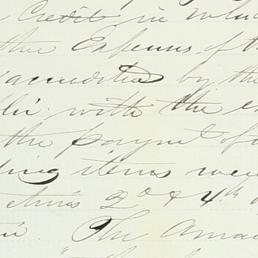 Credit in which
the Expenses of th
accredited by the
with the e
the paymt of
ding items were
items 2d & 4th
The Amou